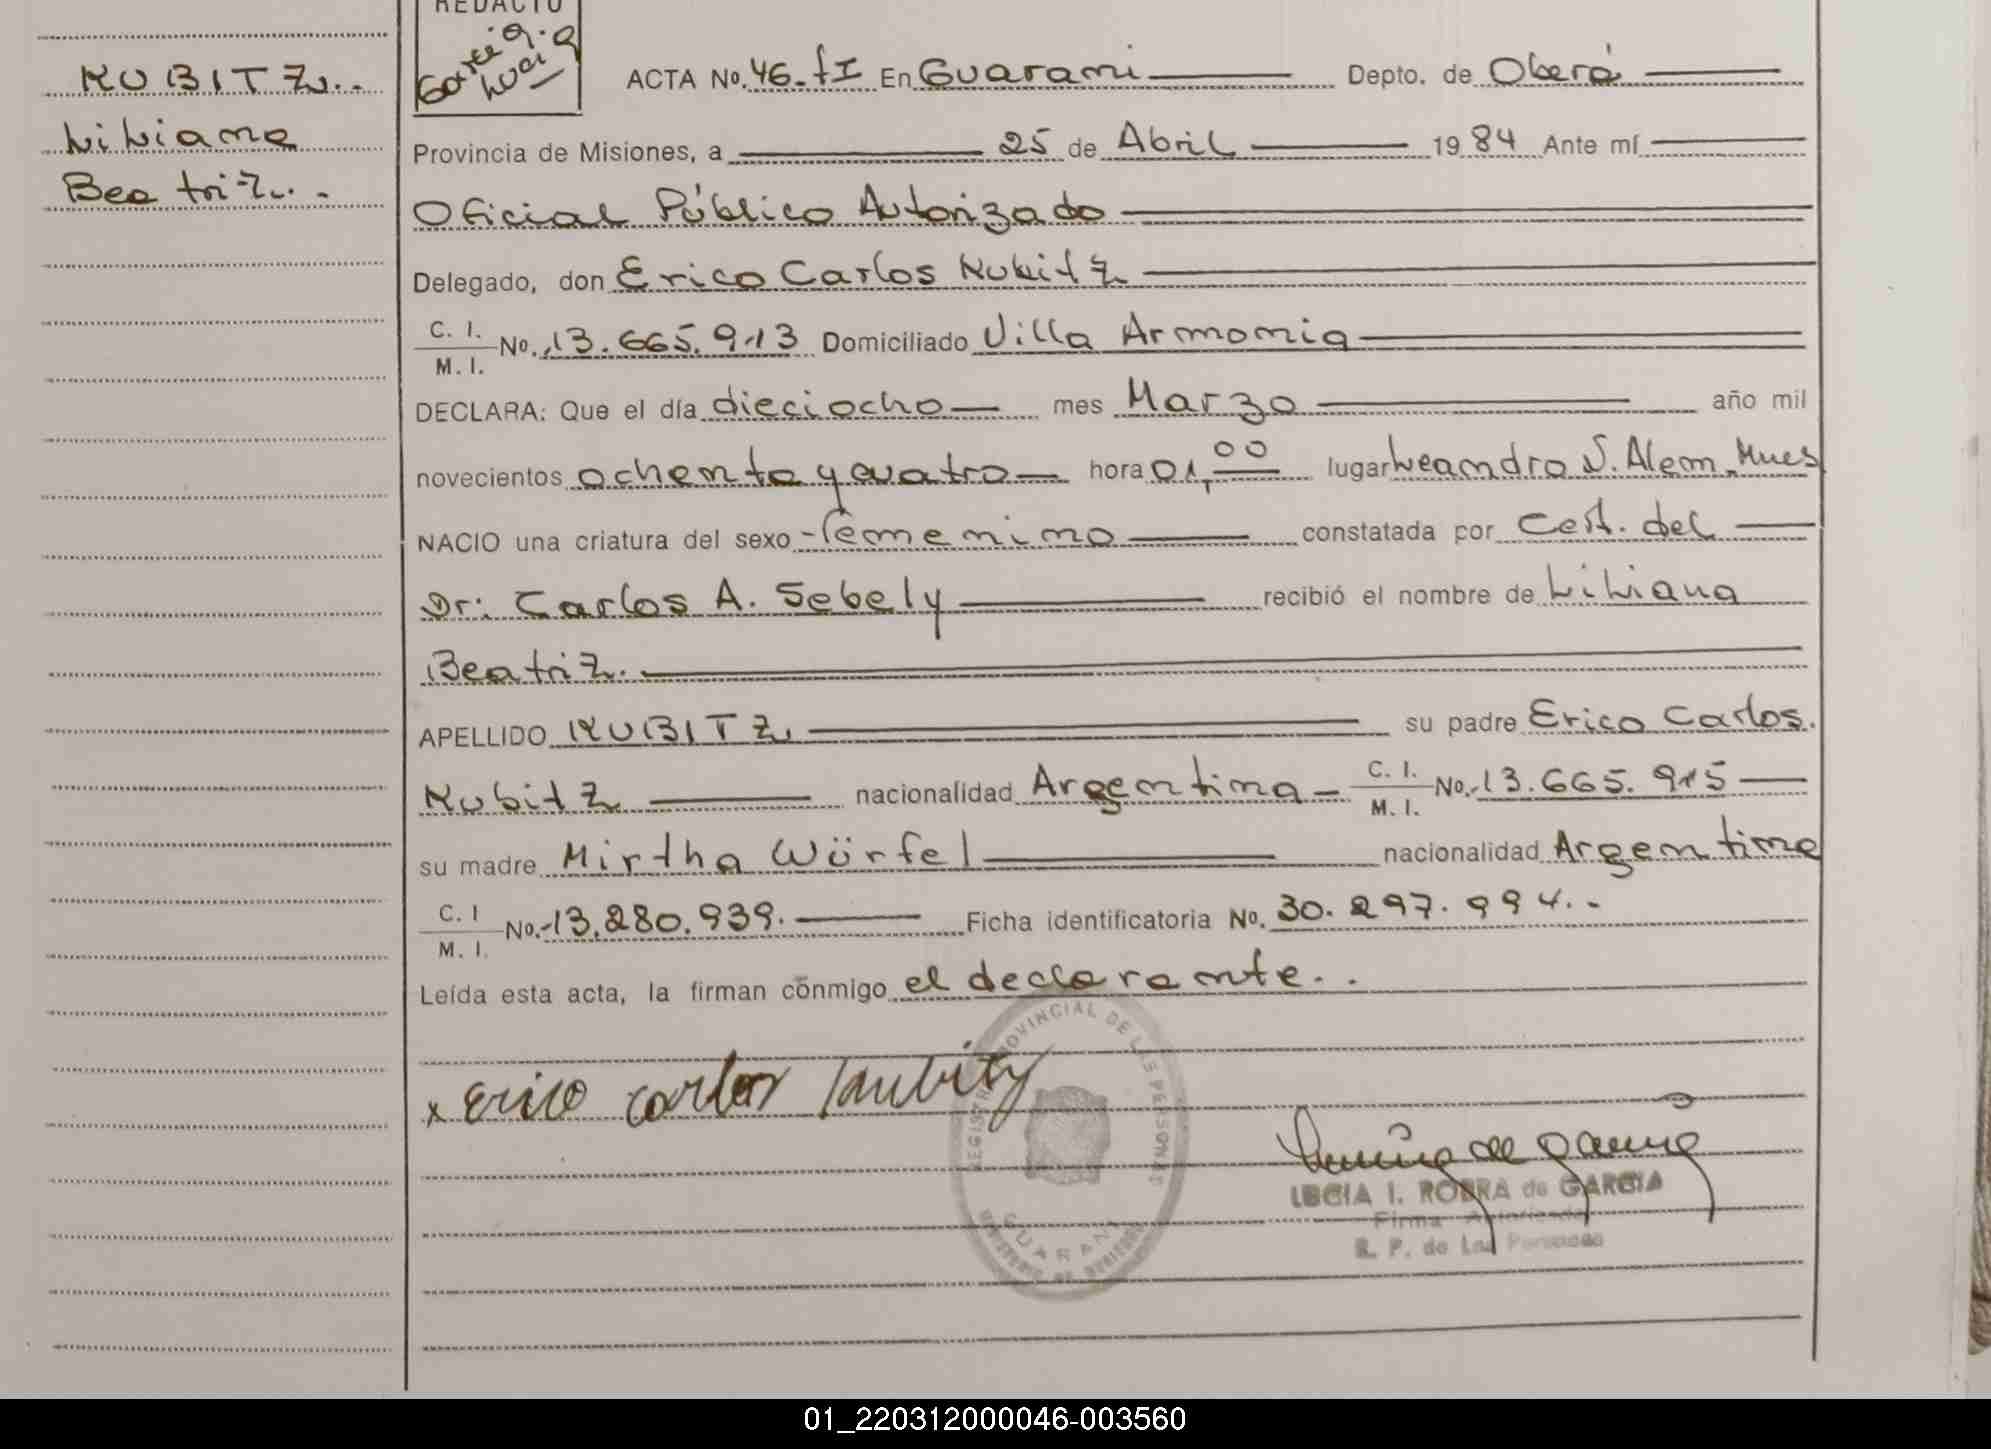 REDACTO
Garcia
Luci
KUBITZ..
Liliana
Beatriz..
ACTA No. 46-fI En Guarani Depto. de Oberá
Provincia de Misiones, a 25 de Abril 1984 Ante mí
Oficial Público Autorizado
Delegado, don Erico Carlos Kubitz
C. I. M. I. No. 13.665.913 Domiciliado Villa Armonia
DECLARA: Que el día dieciocho mes Marzo año mil
novecientos ochenta y cuatro hora 01,00 lugar Leandro N. Alem. Mnes
NACIO una criatura del sexo femenino constatada por Cert. del
Dr: Carlos A. Sebely recibió el nombre de Liliana
Beatriz.
APELLIDO KUBITZ su padre Erico Carlos.
Kubitz nacionalidad Argentina - C. I. M. I. No. 13.665.915
su madre Mirtha Würfel nacionalidad Argentina
C. I M. I. No. 13.280.939. Ficha identificatoria No. 30.297.994..
Leída esta acta, la firman conmigo el declarante..
REGISTRO PROVINCIAL DE LAS PERSONAS
GUARANI
x Erico Carlos Kubitz
I. ROBRA de GARCIA
Firma Autorizada
R. P. de Las Personas
01_220312000046-003560